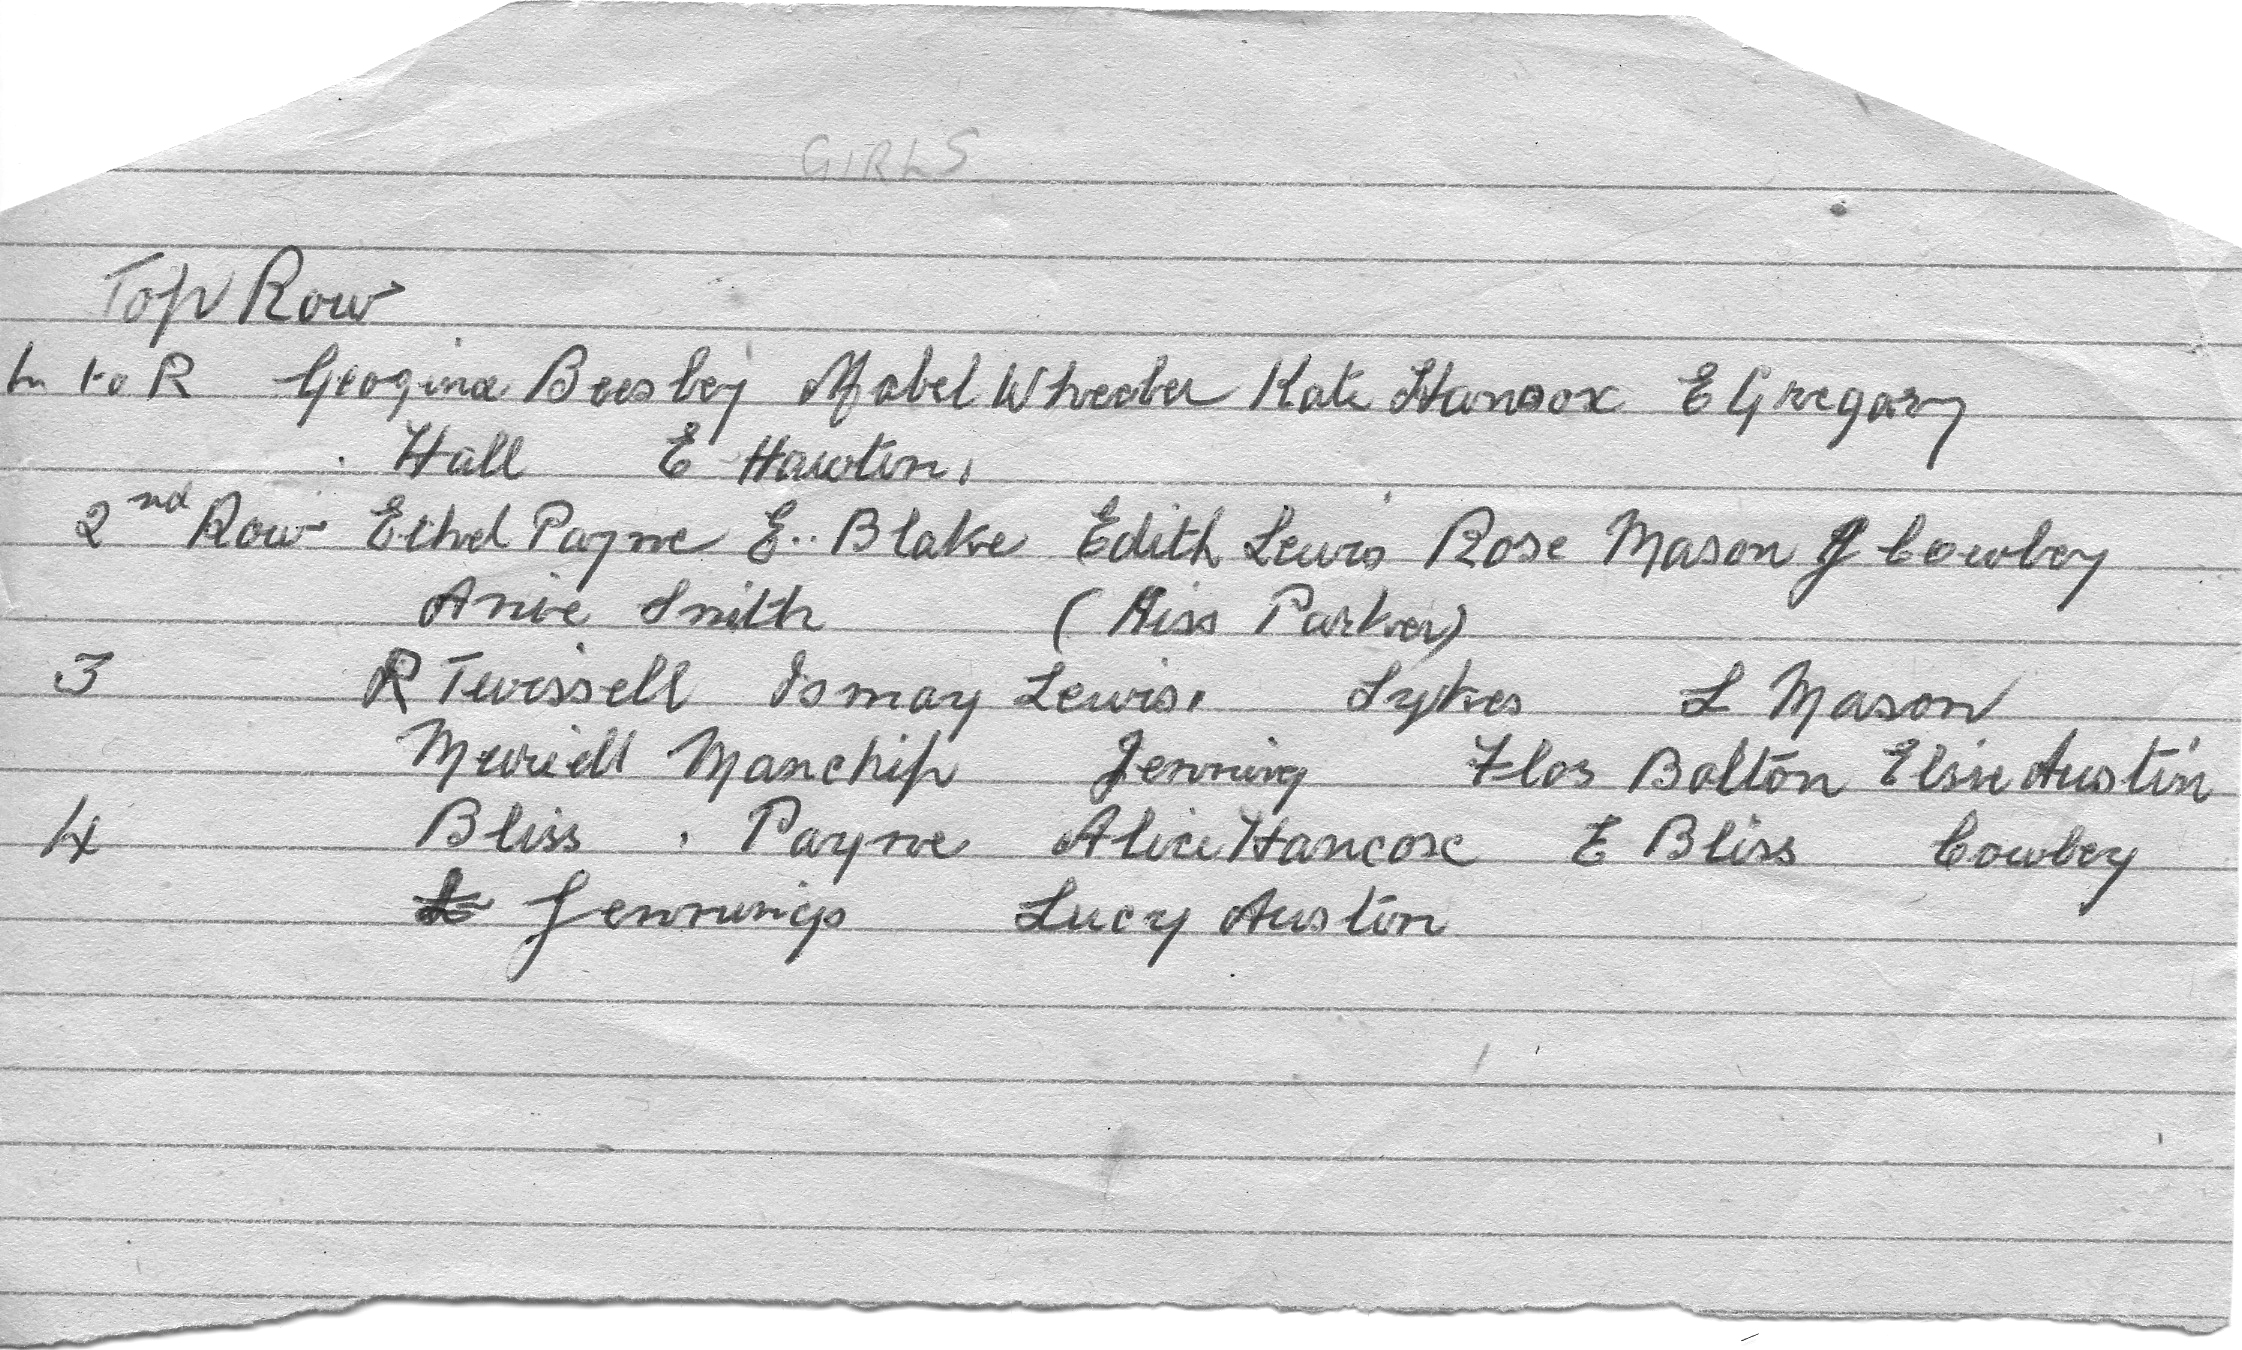 GIRLS
Top Row
L to R Geogina Beesley Mabel Wheeler Kate Hancox E Gregary
Hall E Hawtin,
2nd Row Ethel Payne E.. Blake Edith Lewis Rose Mason J Cowley
Annie Smith (Miss Parker)
3 R Twissell Ismay Lewis, Sykes L Mason
Merriell Manchip Jenning Flos Bolton Elsie Austin
4 Bliss . Payne Alice Hancox E Bliss Cowley
Jennings Lucy Austin